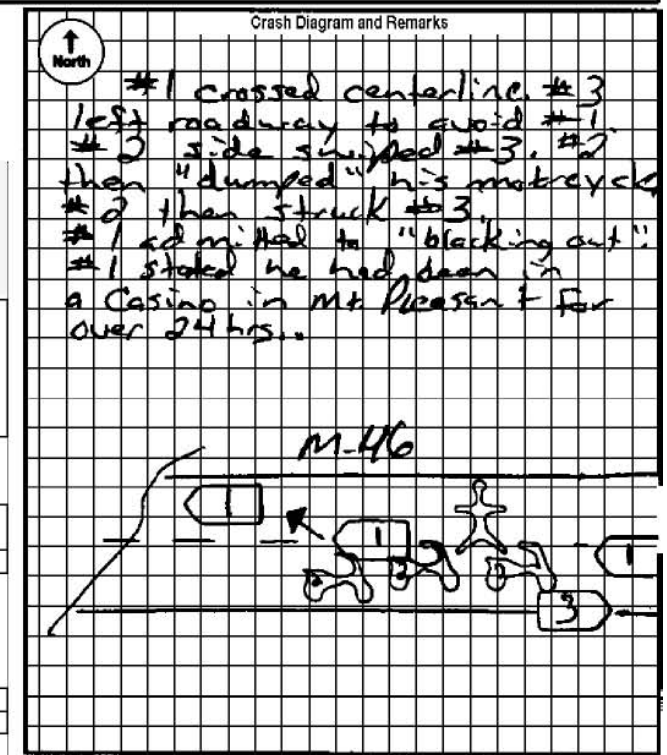 Crash Diagram and Remarks
North
#1 crossed centerline. #3
left roadway to avoid #1
#2 side swiped #3. #2
then "dumped" his motrcycle
#2 then struck #3.
#1 admitted to "blacking out".
#1 stated he had been in
a Casino in Mt. Pleasant for
over 24 hrs..
M-46
1
1
1
2
2
2
3